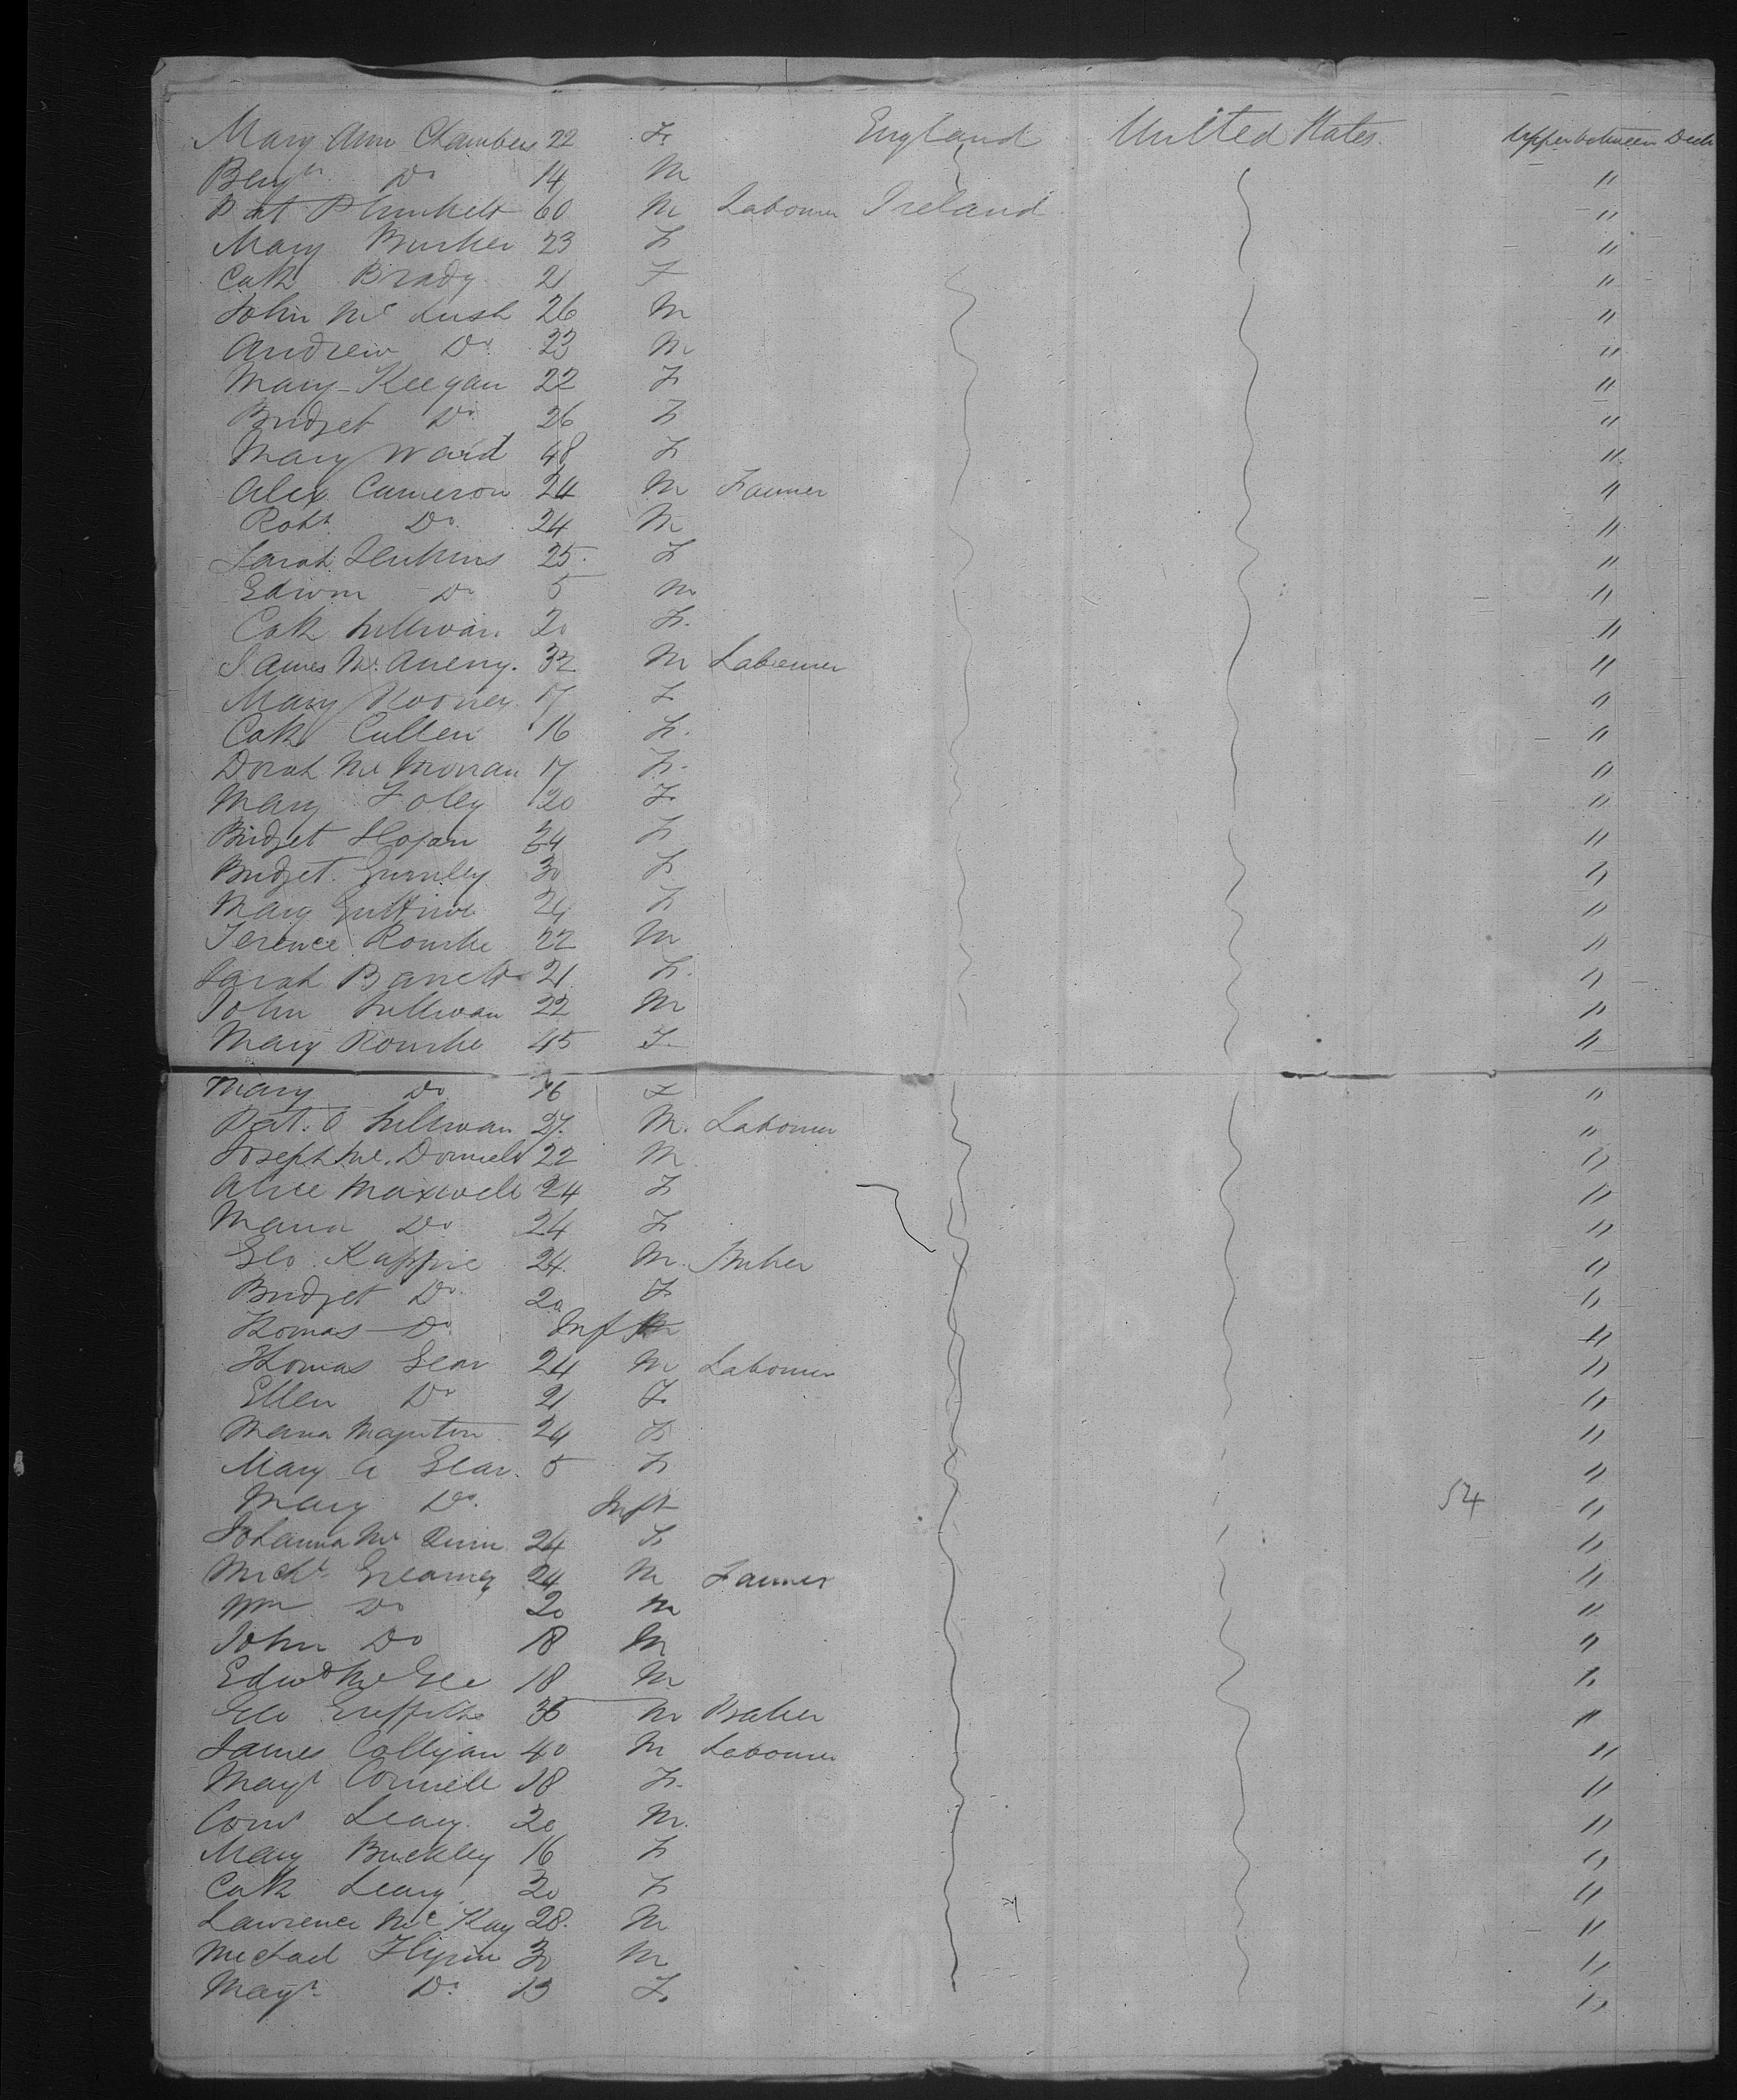 Mary Ann Chambers 22 F England United States Upper between Deck
Benjn Do 14 M "
Pat Plunkett 60 M Labourer Ireland "
Mary Burker 23 F "
Cath Brady 21 F "
John Mc Lush 26 M "
Andrew Do 23 M "
Mary Keegan 22 F "
Bridget Do 26 F "
Mary Ward 48 F "
Alex Cameron 24 M Farmer "
Robt Do 24 M "
Sarah Jenkins 25 F "
Edwin Do 5 M "
Cath Sullivan 20 F "
James Mc Aneny 32 M Labourer "
Mary Rooney 17 F "
Cath Cullen 16 F "
Dorah Mc Morran 17 F "
Mary Foley 20 F "
Bridget Hogan 24 F "
Bridget Gurnley 30 F "
Mary 24 F "
Terence Rourke 22 M "
Sarah Barrett 21 F "
John Sullivan 22 M "
Mary Rourke 45 F "
Mary Do 16 F "
Pat. O Sullivan 27 M Labourer "
Joseph Mc. Donnell 22 M "
Alice Maxwell 24 F "
Maria Do 24 F "
Geo. Kappie 24 M "
Bridget Do 20 F "
Thomas Do Inft M "
Thomas Gear 24 M Labourer "
Ellen Do 21 F "
Maria 24 F "
Mary A Gear 5 F "
Mary Do Inft 54 "
Johanna Mc Quin 24 F "
Michl Greaney 24 M Farmer "
Wm Do 20 M "
John Do 18 M "
Edwd Mc Gee 18 M "
Geo Griffiths 35 M Baker "
James Colligan 40 M Labourer "
Magt Connell 18 F "
Corns Leary 20 M "
Mary Buckley 16 F "
Cath Leary 30 F "
Lawrence Mc Kay 28 M "
Michael Flynn 30 M "
Magt Do 13 F "